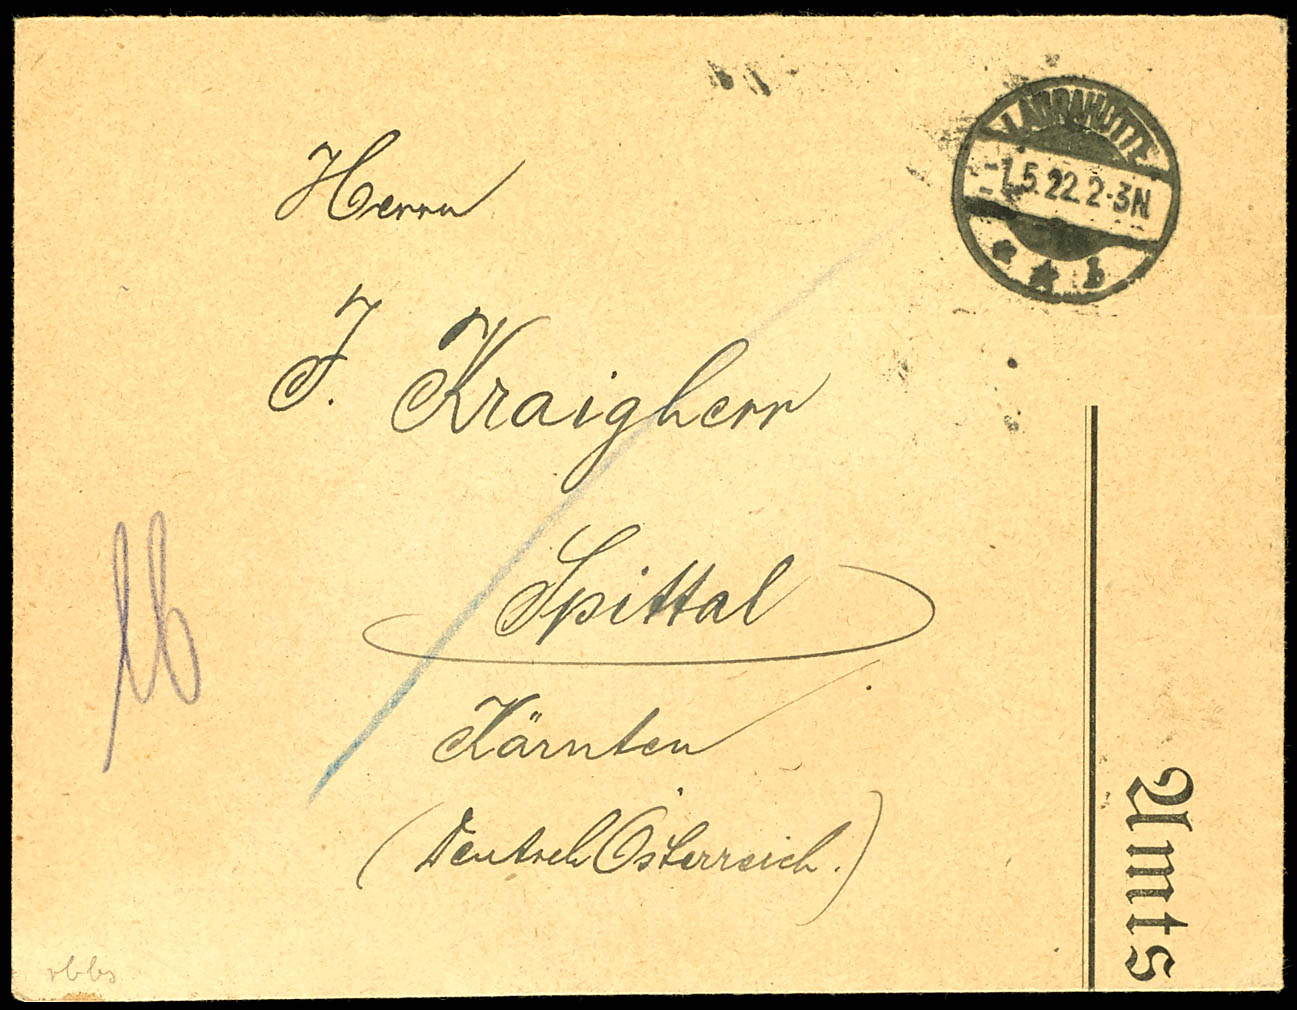 Herrn
J. Kraigherr
Spittal
Kärnten
(Deutsch Österreich.)
-1.5.22.2-3N
* * b
Amts